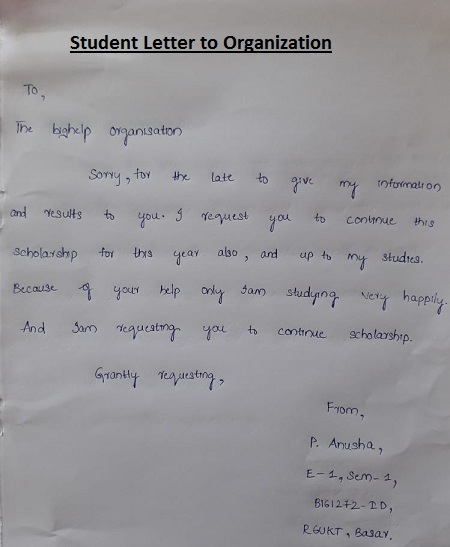 Student Letter to Organization
To,
The bighelp organisation
Sorry, for the late to give my information
and results to you. I request you to continue this
scholarship for this year also, and up to my studies.
Because of your help only Iam studying very happily.
And Iam requesting you to continue scholarship.
Grantly requesting,
From,
P. Anusha,
E-1, Sem-1,
B161272-ID,
RGUKT, Basar.